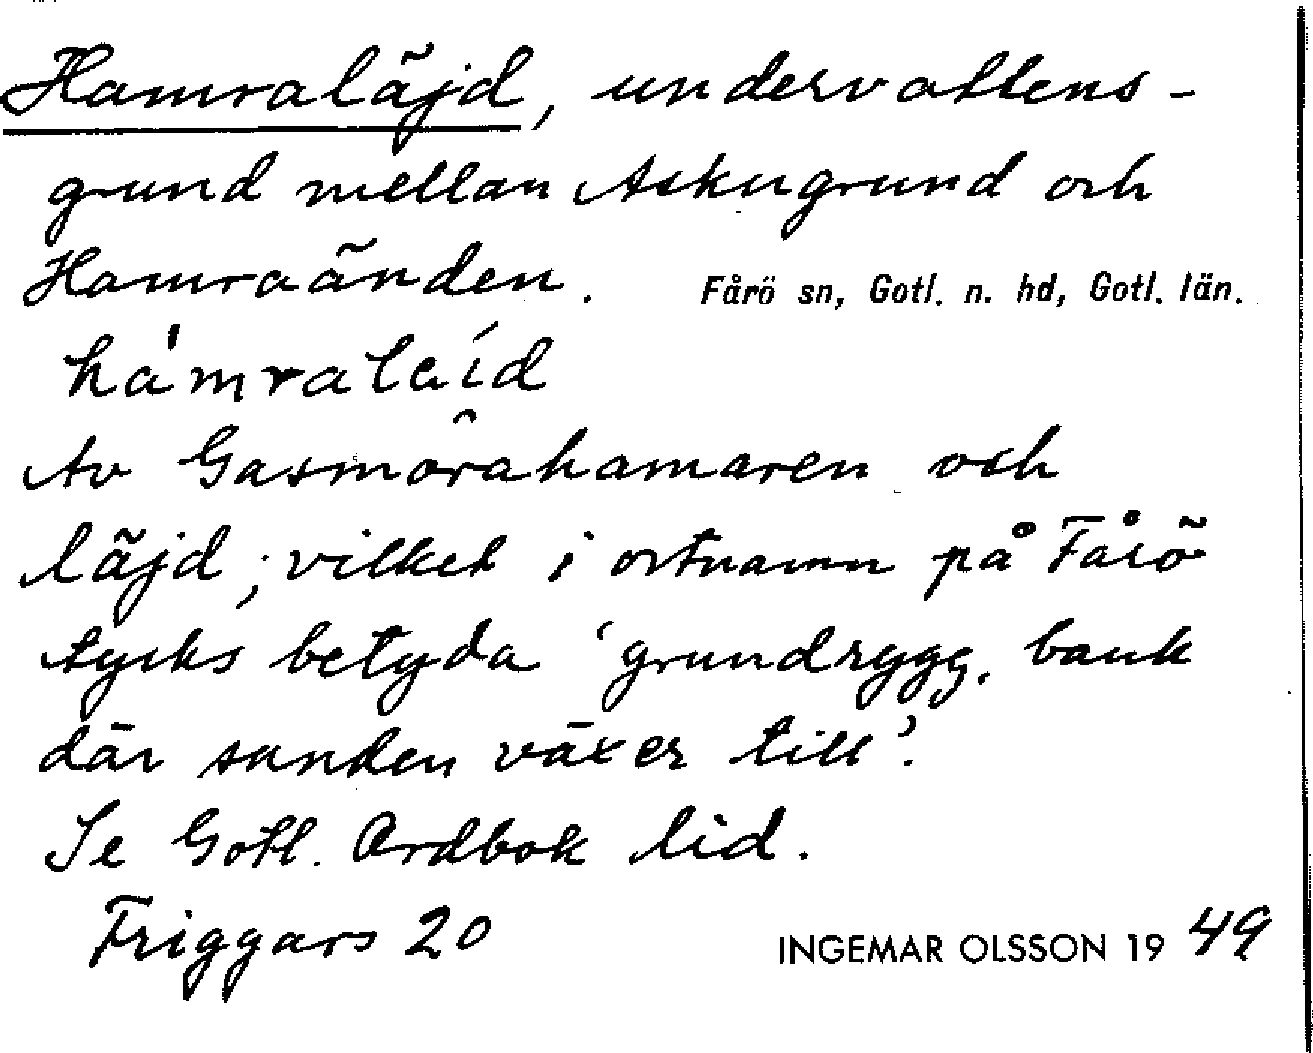 Hamraläjd, undervattens-
grund mellan Askugrund och
Hamraänden. Fårö sn, Gotl. n. hd, Gotl. län.
ha'mralaíd
Av Gasmôrahamaren och
läjd, vilket i ortnamn på Fårö
tycks betyda 'grundrygg, bank
där sanden växer till'.
Se Gotl. Ordbok lid.
Friggars 20 INGEMAR OLSSON 1949